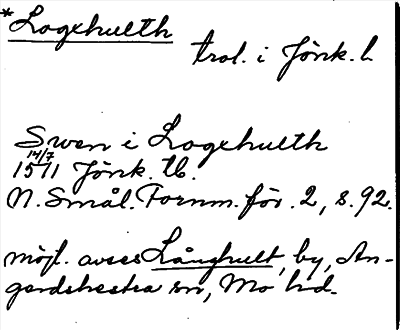 *Logxhulth
trol. i Jönk. l.
Swen i Logxhulth
14/7
1511 Jönk. tb.
N. Smål. Fornm. för. 2, s. 92.
möjl. avses Långhult, by, An-
gerdshestra sn, Mo hd.